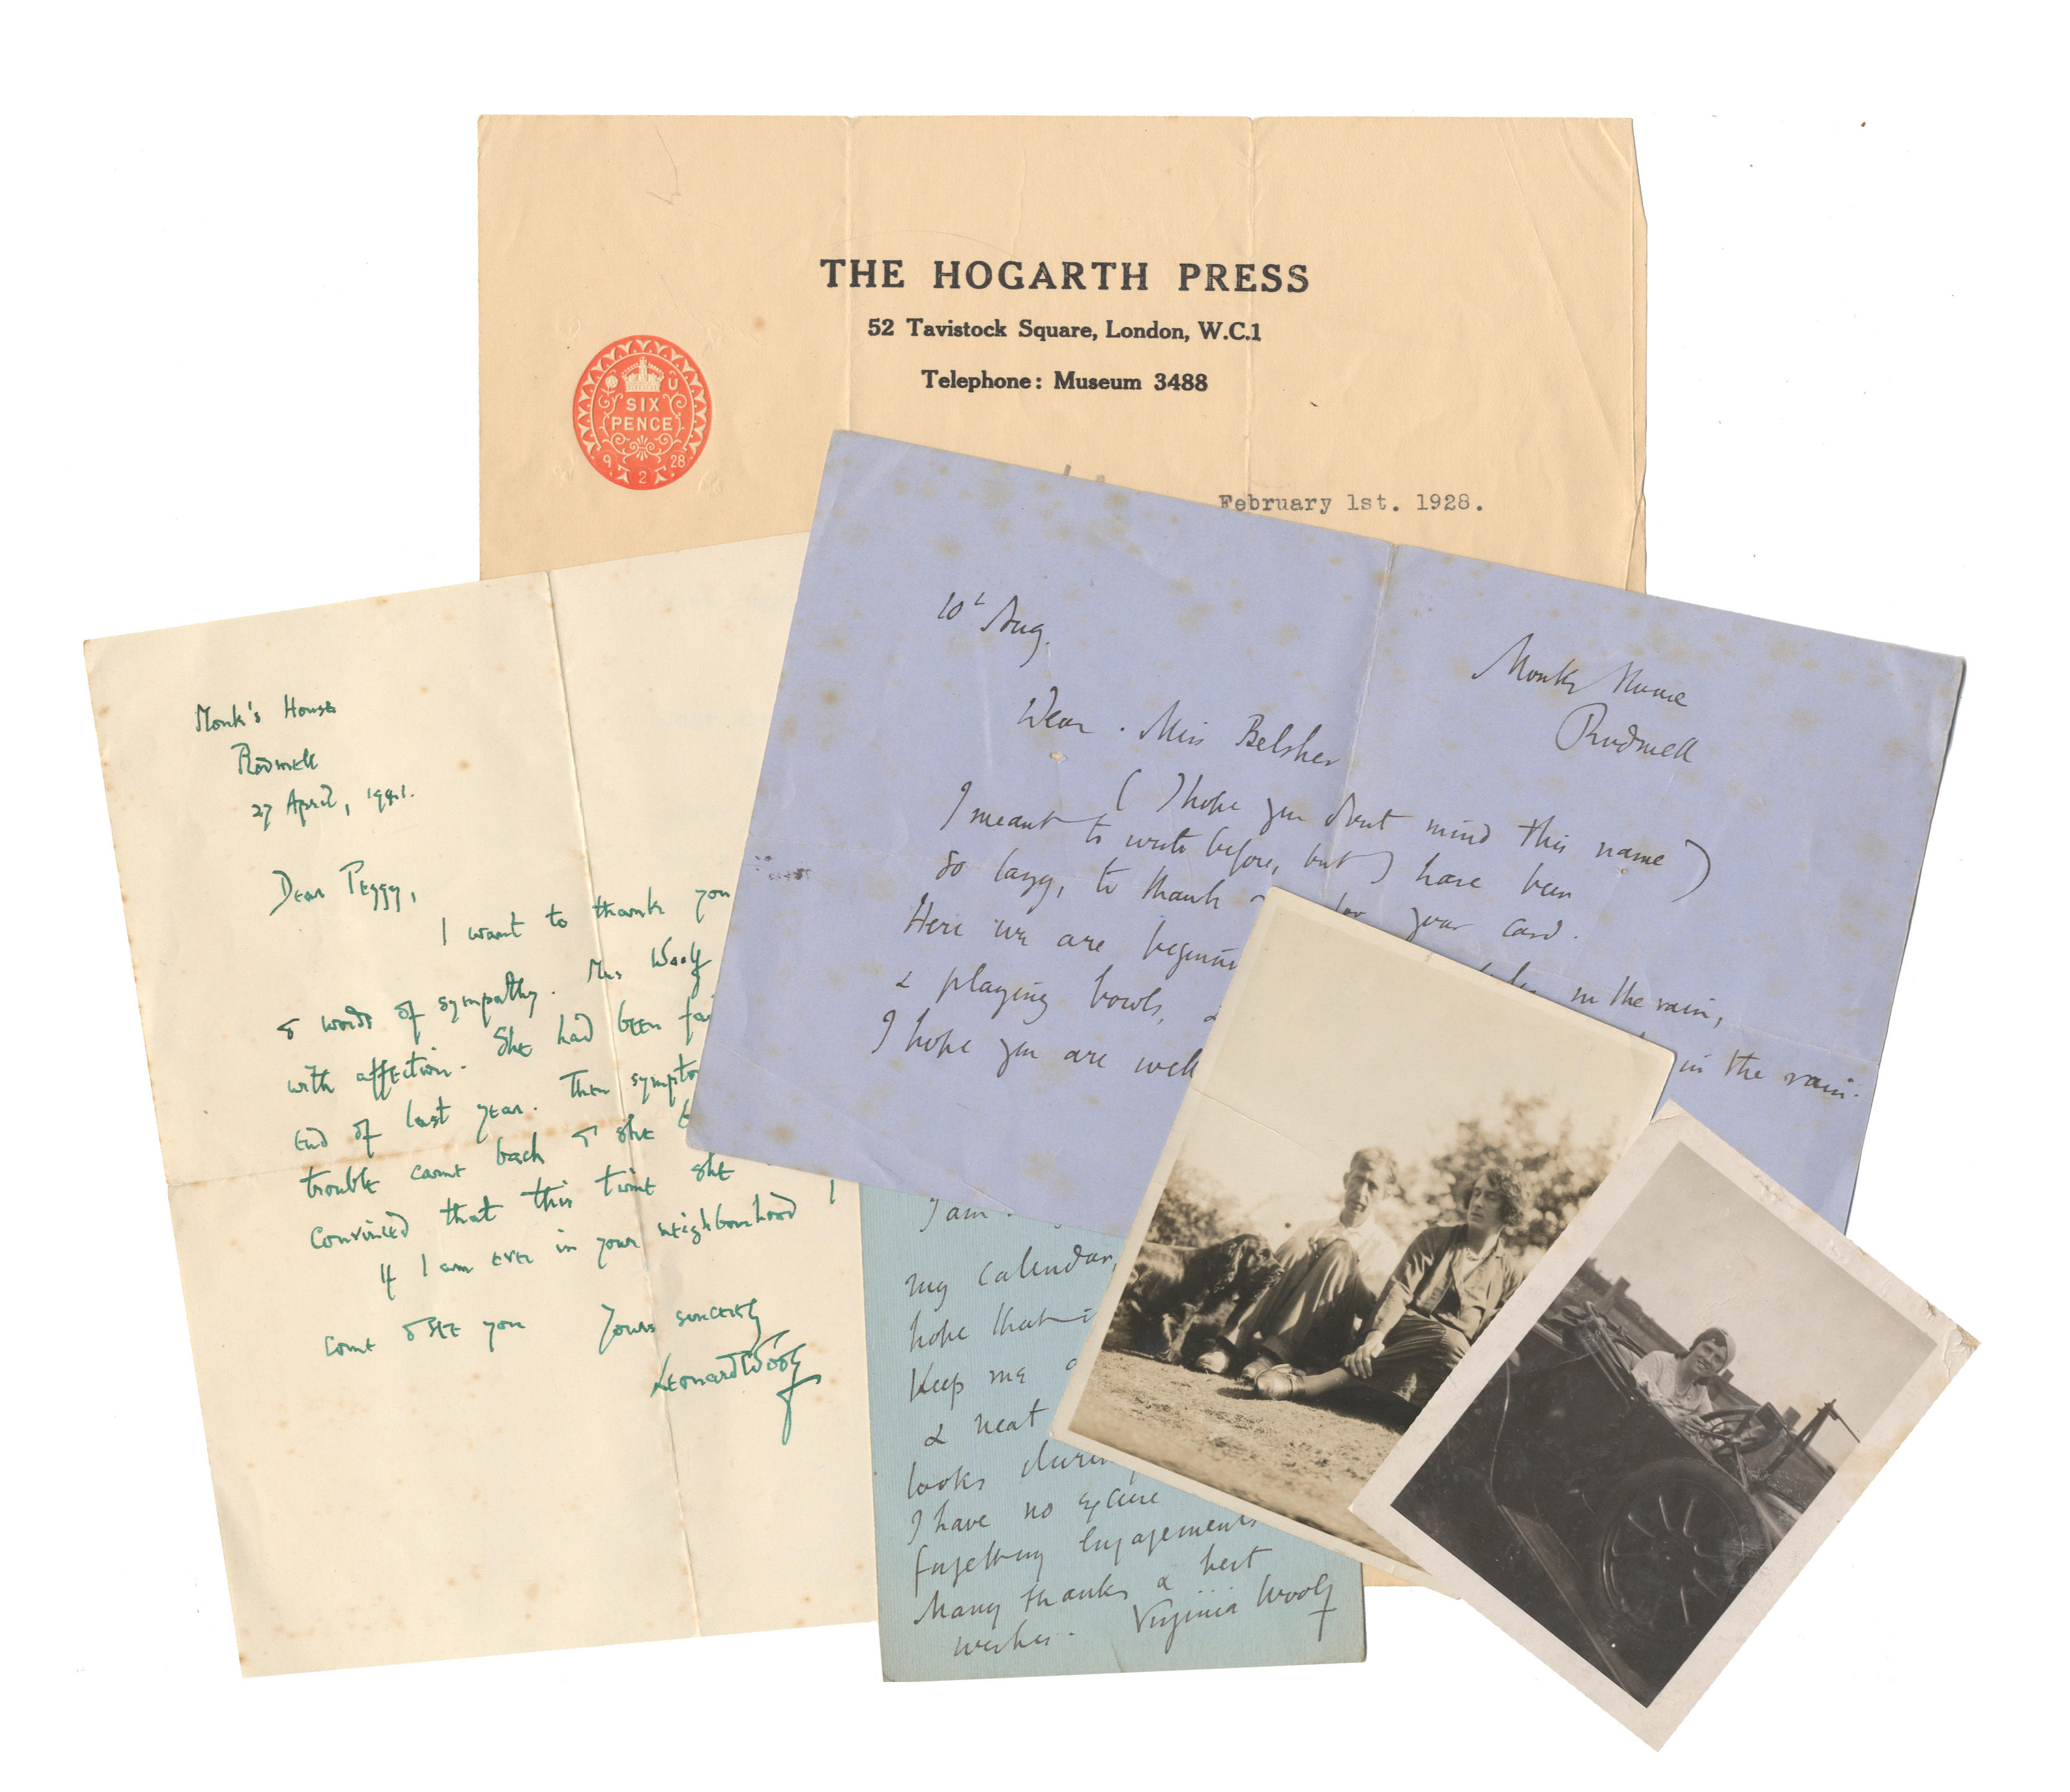 THE HOGARTH PRESS
52 Tavistock Square, London, W.C.1
Telephone: Museum 3488
U
SIX
PENCE
9 2 28
February 1st. 1928.
Monk's House
Rodmell
27 April, 1941.
Dear Peggy,
I want to thank you
& words of sympathy. Mrs Woolf
with affection. She had been
end of last year. Then
trouble came back & she
convinced that this time she
If I am ever in your neighbourhood I
come & see you
Yours sincerely
Leonard Woolf
10th Aug.
Monks House
Rodmell
Dear Miss Belsher
(I hope you dont mind this name)
I meant to write before, but I have been
so lazy, to thank for your card.
Here we are in the rain,
& playing bowls, in the rain.
I hope you are well
I am
my calendar,
hope that
Keep me
& neat
looks
I have no excuse
forgetting engagements
Many thanks & best
wishes. Virginia Woolf